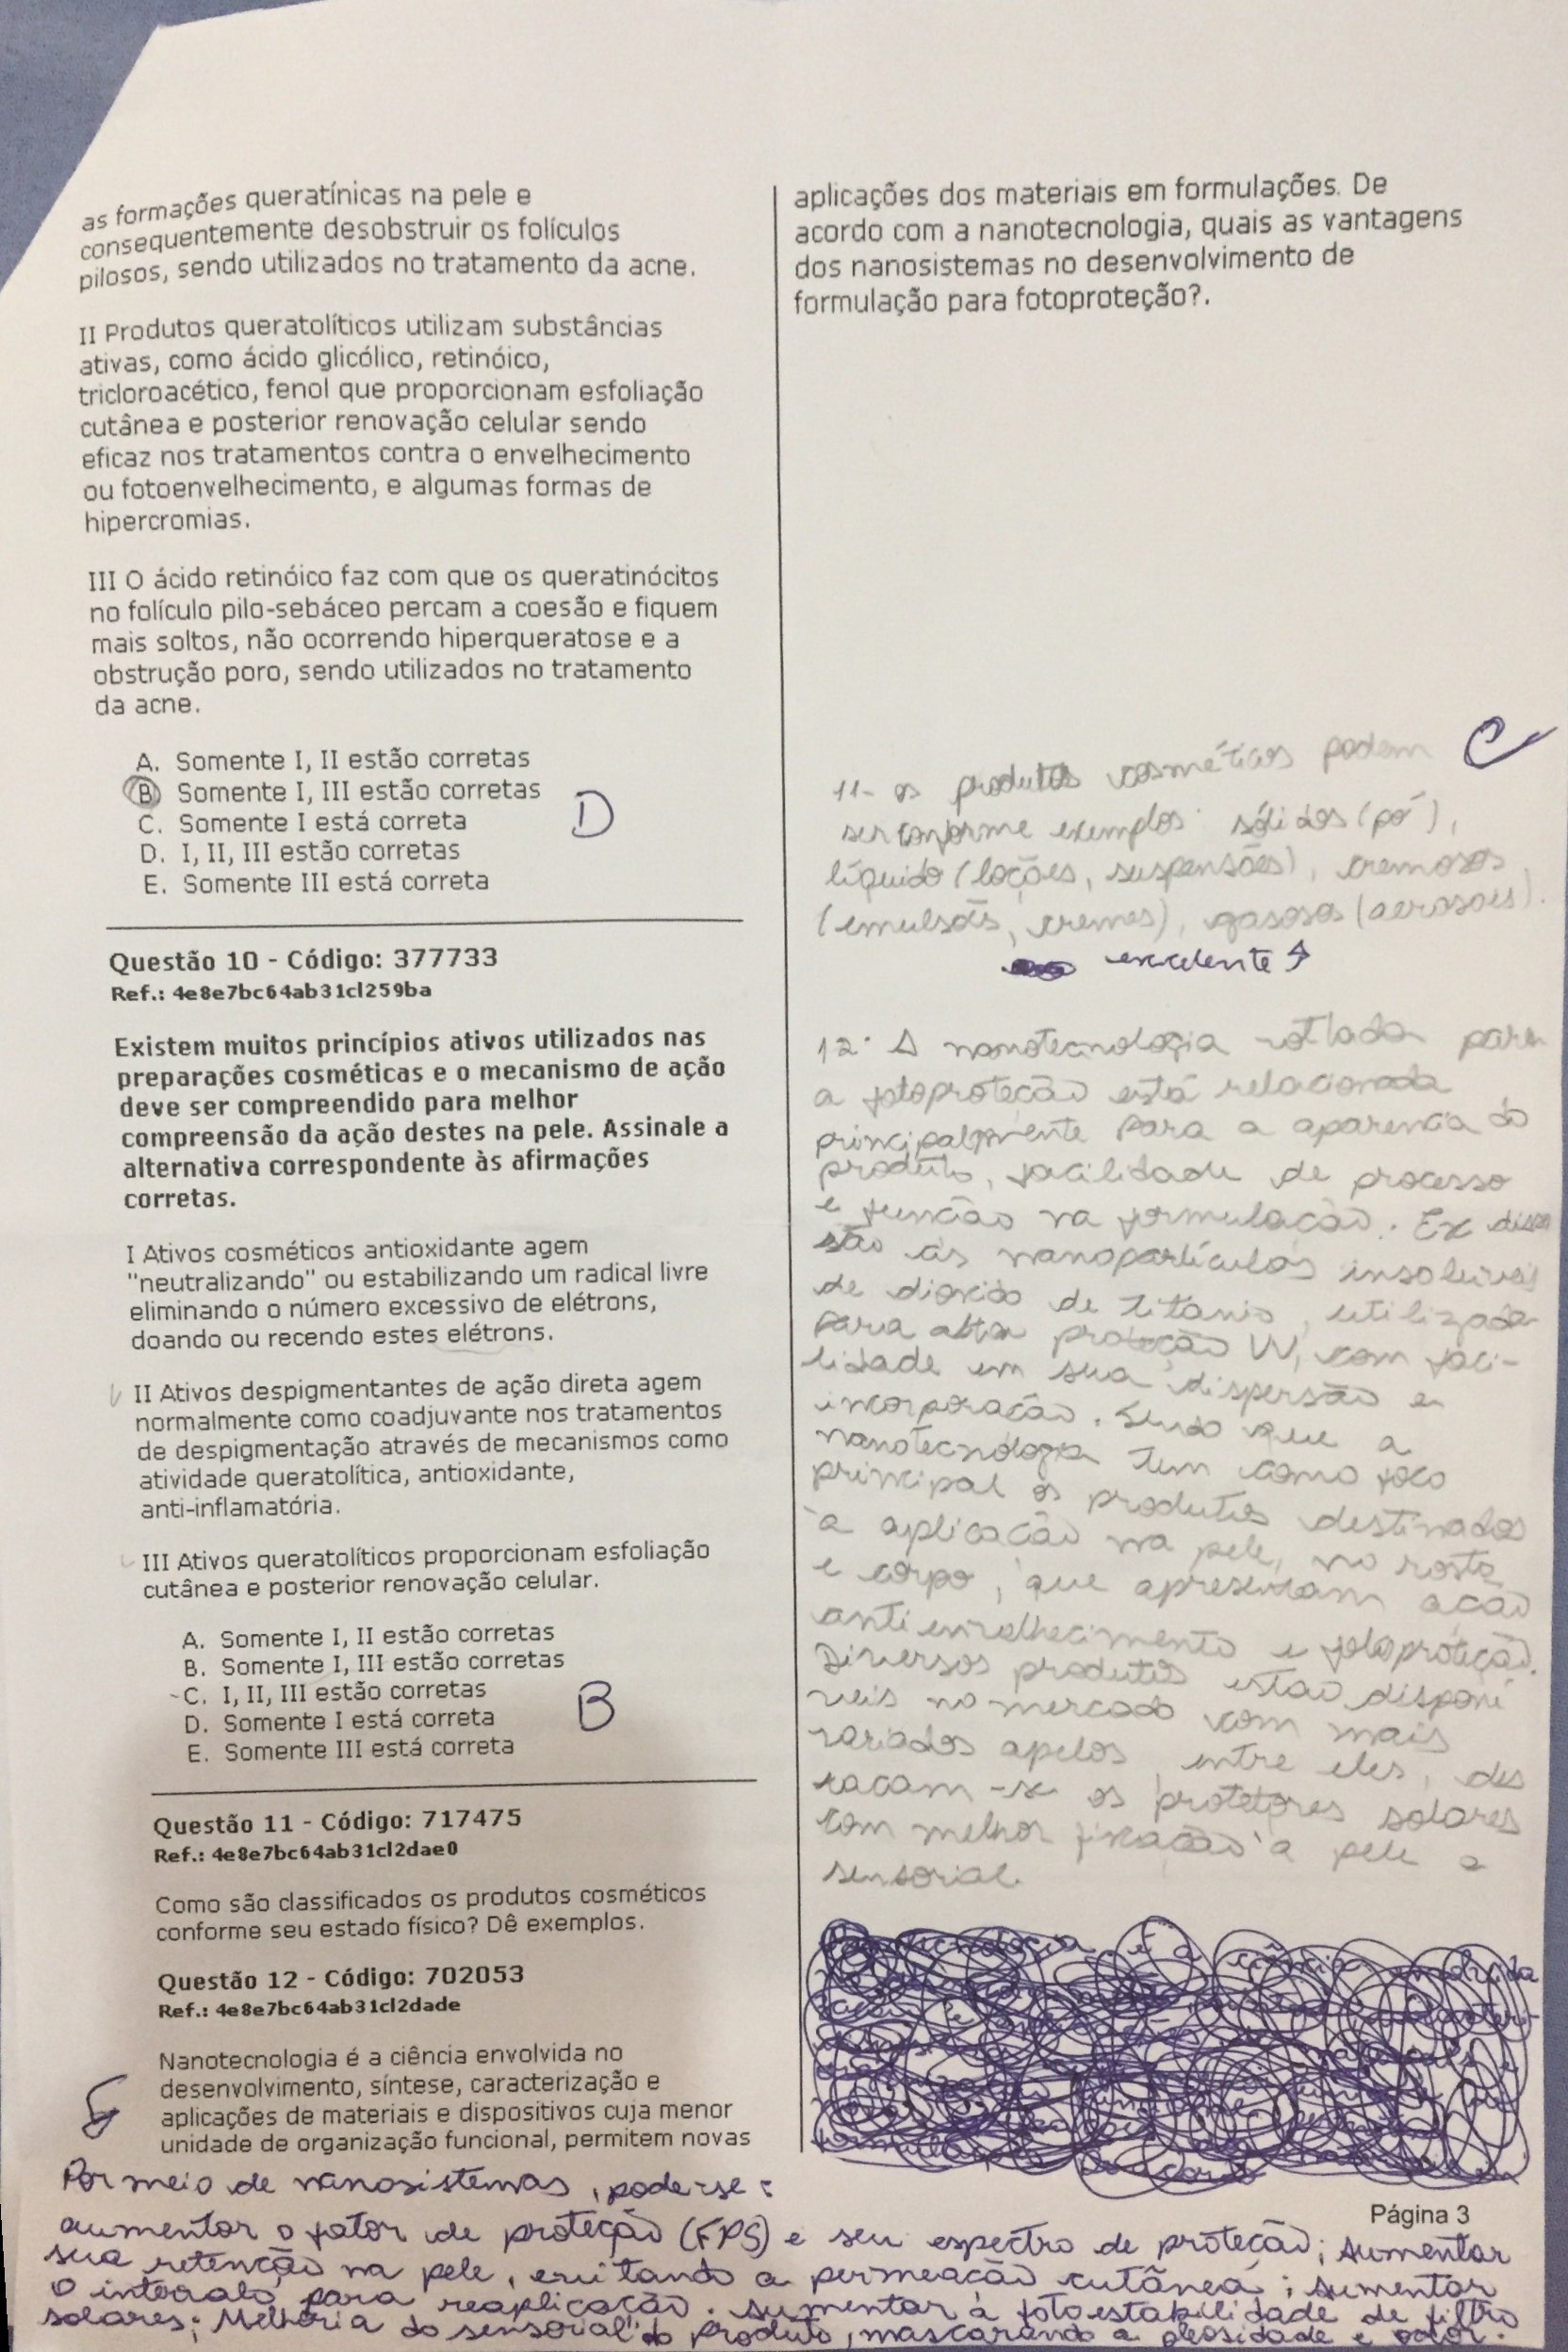 as formações queratínicas na pele e
consequentemente desobstruir os folículos
pilosos, sendo utilizados no tratamento da acne.
II Produtos queratolíticos utilizam substâncias
ativas, como ácido glicólico, retinóico,
tricloroacético, fenol que proporcionam esfoliação
cutânea e posterior renovação celular sendo
eficaz nos tratamentos contra o envelhecimento
ou fotoenvelhecimento, e algumas formas de
hipercromias.
III O ácido retinóico faz com que os queratinócitos
no folículo pilo-sebáceo percam a coesão e fiquem
mais soltos, não ocorrendo hiperqueratose e a
obstrução poro, sendo utilizados no tratamento
da acne.
A. Somente I, II estão corretas
B. Somente I, III estão corretas
C. Somente I está correta
D. I, II, III estão corretas
E. Somente III está correta
D
Questão 10 - Código: 377733
Ref.: 4e8e7bc64ab31cl259ba
Existem muitos princípios ativos utilizados nas
preparações cosméticas e o mecanismo de ação
deve ser compreendido para melhor
compreensão da ação destes na pele. Assinale a
alternativa correspondente às afirmações
corretas.
I Ativos cosméticos antioxidante agem
"neutralizando" ou estabilizando um radical livre
eliminando o número excessivo de elétrons,
doando ou recendo estes elétrons.
II Ativos despigmentantes de ação direta agem
normalmente como coadjuvante nos tratamentos
de despigmentação através de mecanismos como
atividade queratolítica, antioxidante,
anti-inflamatória.
III Ativos queratolíticos proporcionam esfoliação
cutânea e posterior renovação celular.
A. Somente I, II estão corretas
B. Somente I, III estão corretas
C. I, II, III estão corretas
D. Somente I está correta
E. Somente III está correta
B
Questão 11 - Código: 717475
Ref.: 4e8e7bc64ab31cl2dae0
Como são classificados os produtos cosméticos
conforme seu estado físico? Dê exemplos.
Questão 12 - Código: 702053
Ref.: 4e8e7bc64ab31cl2dade
Nanotecnologia é a ciência envolvida no
desenvolvimento, síntese, caracterização e
aplicações de materiais e dispositivos cuja menor
unidade de organização funcional, permitem novas
aplicações dos materiais em formulações. De
acordo com a nanotecnologia, quais as vantagens
dos nanosistemas no desenvolvimento de
formulação para fotoproteção?.
C
11- os produtos cosméticos podem
ser conforme exemplos sólidos (pó),
líquido (loções, suspensões), cremosos
(emulsões, cremes), gasosos (aerosois).
excelente
12- A nanotecnologia voltada para
a fotoproteção está relacionada
principalmente para a aparencia do
produto, facilidade de processo
e função na formulação. Ex
são as nanopartículas insolúveis
de dioxido de titanio, utilizada
para alta proteção UV, com faci-
lidade em sua dispersão e
incorporação. Sendo que a
nanotecnologia tem como foco
principal os produtos destinados
à aplicação na pele, no rosto
e corpo, que apresentam ação
anti envelhecimento e fotoproteção.
Diversos produtos estão disponi
veis no mercado com mais
variados apelos, entre eles, des
tacam-se os protetores solares
com melhor fixação à pele e
sensorial.
Por meio de nanosistemas, pode-se:
aumentar o fator de proteção (FPS) e seu espectro de proteção; Aumentar
sua retenção na pele, evitando a permeação cutânea; Aumentar
o intervalo para reaplicação. Aumentar a fotoestabilidade de filtro
solares; Melhoria do sensorial do produto, mascarando a oleosidade e odor.
Página 3